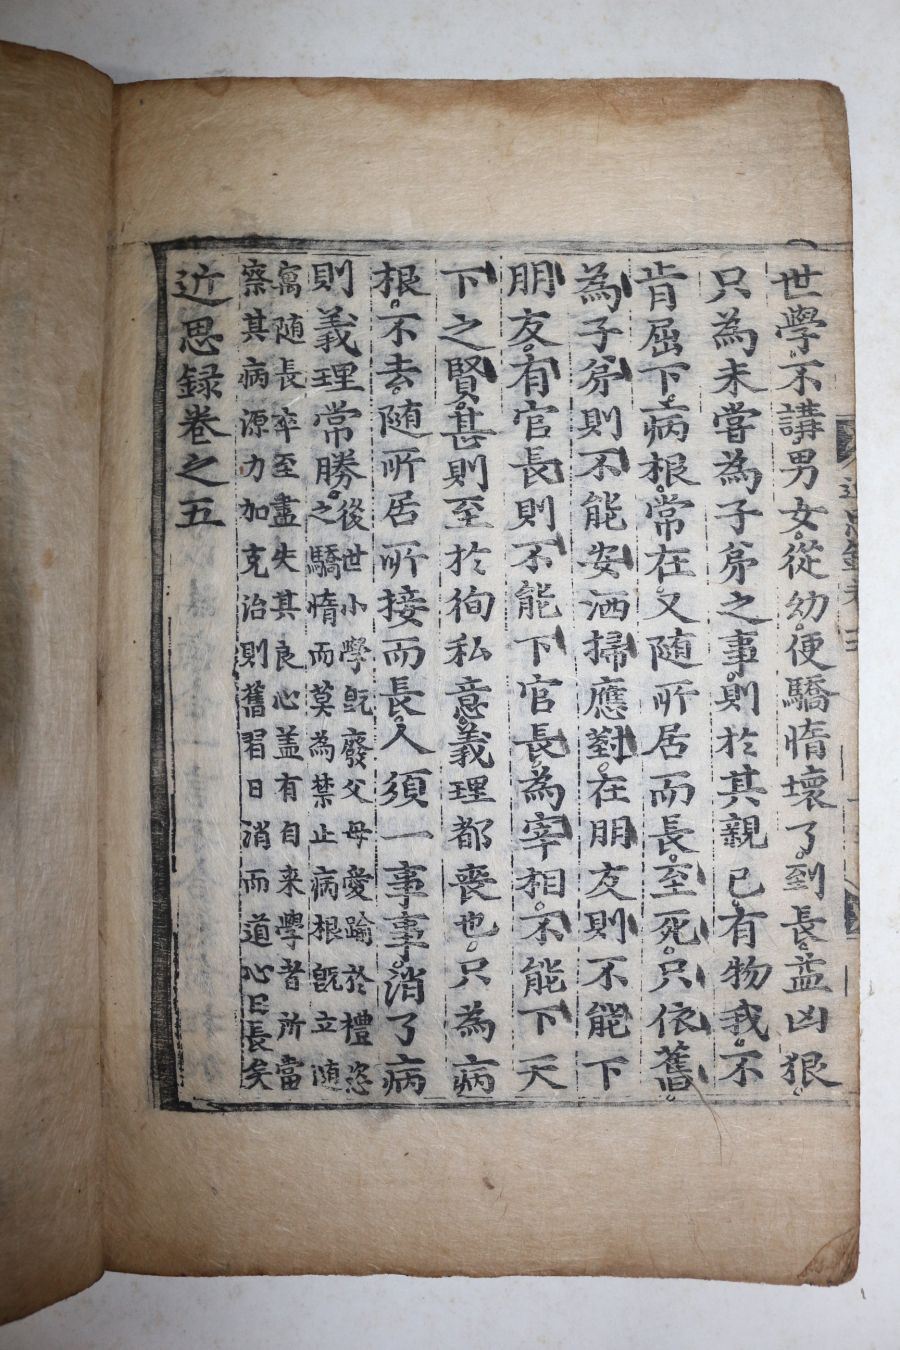 世學不講男女從幼便驕惰壞了到長益凶狠
只為未嘗為子弟之事則於其親已有物我不
肯屈下病根常在又随所居而長至死只依舊
為子弟則不能安洒掃應對在朋友則不能下
朋友有官長則不能下官長為宰相不能下天
下之賢甚則至於徇私意義理都喪也只為病
根不去随所居所接而長人須一事事消了病
則義理常勝
後世小學旣廢父母愛踰於禮恣
之驕惰而莫為禁止病根旣立随
寓随長卒至盡失其良心盖有自来學者所當
察其病源力加克治則舊習日消而道心日長矣
近思録卷之五